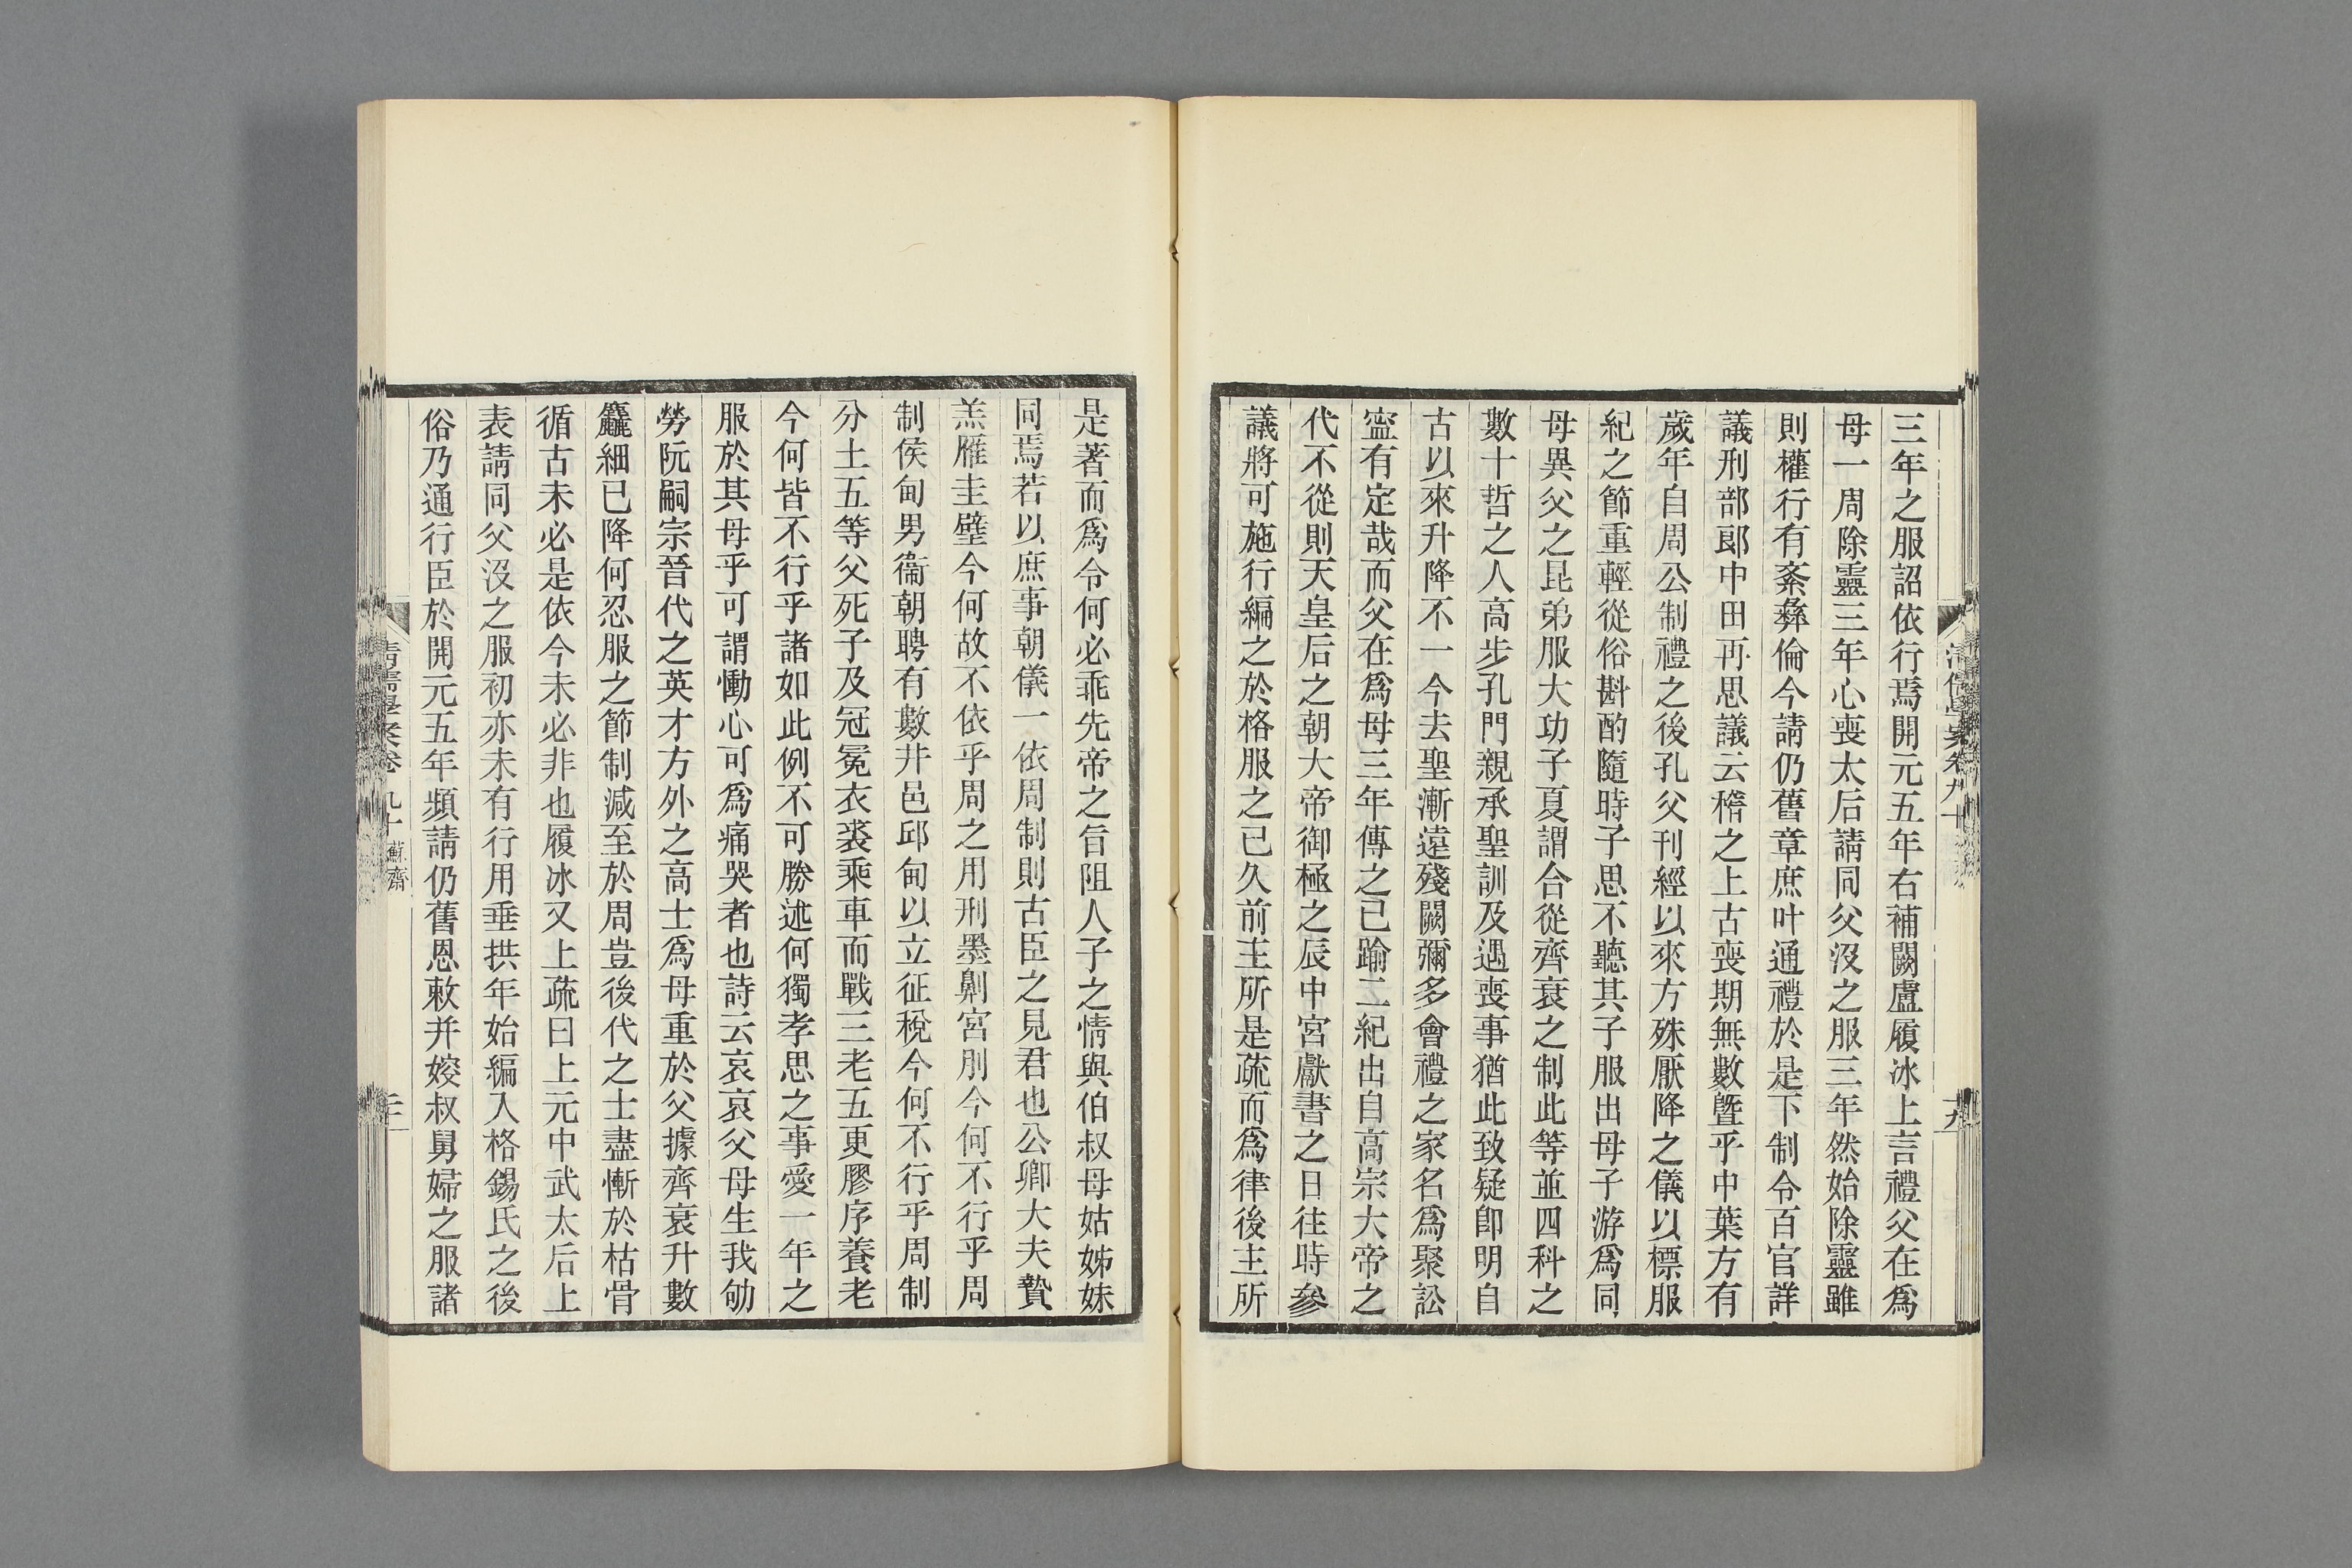 三年之服詔依行焉開元五年右補闕盧履冰上言禮父在爲
母一周除靈三年心喪太后請同父沒之服三年然始除靈雖
則權行有紊彝倫今請仍舊章庶叶通禮於是下制令百官詳
議刑部郎中田再思議云稽之上古喪期無數曁乎中葉方有
歲年自周公制禮之後孔父刊經以來方殊厭降之儀以標服
紀之節重輕從俗斟酌隨時子思不聽其子服出母子游爲同
母異父之昆弟服大功子夏謂合從齊衰之制此等並四科之
數十哲之人高步孔門親承聖訓及遇喪事猶此致疑卽明自
古以來升降不一今去聖漸遠殘闕彌多會禮之家名爲聚訟
寍有定哉而父在爲母三年傳之已踰二紀出自高宗大帝之
代不從則天皇后之朝大帝御極之辰中宮獻書之日往時參
議將可施行編之於格服之已久前主所是疏而爲律後主所
是著而爲令何必乖先帝之旨阻人子之情與伯叔母姑姊妹
同焉若以庶事朝儀一依周制則古臣之見君也公卿大夫贄
羔雁圭璧今何故不依乎周之用刑墨劓宮刖今何不行乎周
制侯甸男衞朝聘有數井邑邱甸以立征稅今何不行乎周制
分土五等父死子及冠冕衣裘乘車而戰三老五更膠序養老
今何皆不行乎諸如此例不可勝述何獨孝思之事愛一年之
服於其母乎可謂慟心可爲痛哭者也詩云哀哀父母生我劬
勞阮嗣宗晉代之英才方外之高士爲母重於父據齊衰升數
麤細已降何忍服之節制減至於周豈後代之士盡慚於枯骨
循古未必是依今未必非也履冰又上疏曰上元中武太后上
表請同父沒之服初亦未有行用垂拱年始編入格錫氏之後
俗乃通行臣於開元五年頻請仍舊恩敕并嫂叔舅婦之服諸
清儒學案卷九十 蘇齋